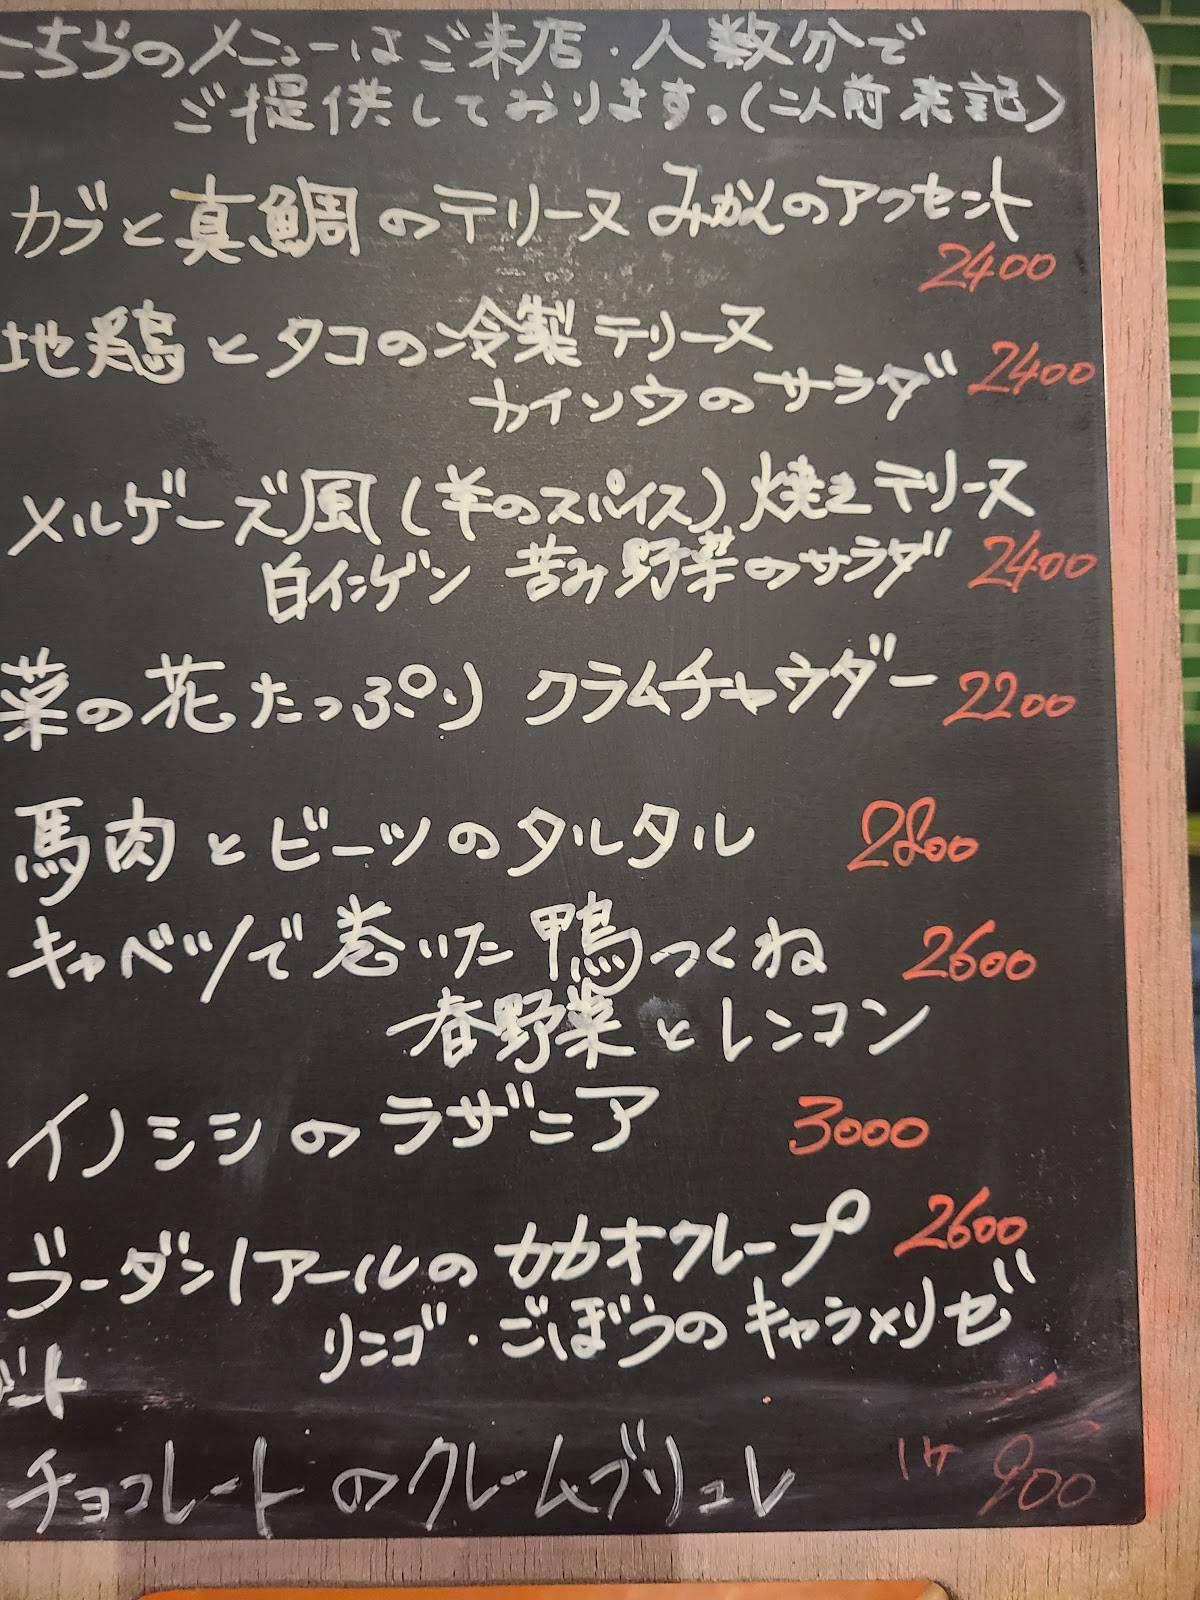 こちらのメニューはご来店・人数分で
ご提供しております。(二人前表記)
カブと真鯛のテリーヌ みかんのアクセント
2400
地鶏とタコの冷製テリーヌ
カイソウのサラダ 2400
メルゲーズ風(羊のスパイス)焼きテリーヌ
白インゲン 苦み野菜のサラダ 2400
菜の花たっぷり クラムチャウダー 2200
馬肉とビーツのタルタル 2800
キャベツで巻いた鴨つくね 2600
春野菜とレンコン
イノシシのラザニア 3000
ブーダンノアールのカカオクレープ 2600
リンゴ・ごぼうのキャラメリゼ
ート
チョコレートのクレームブリュレ 1ケ 900